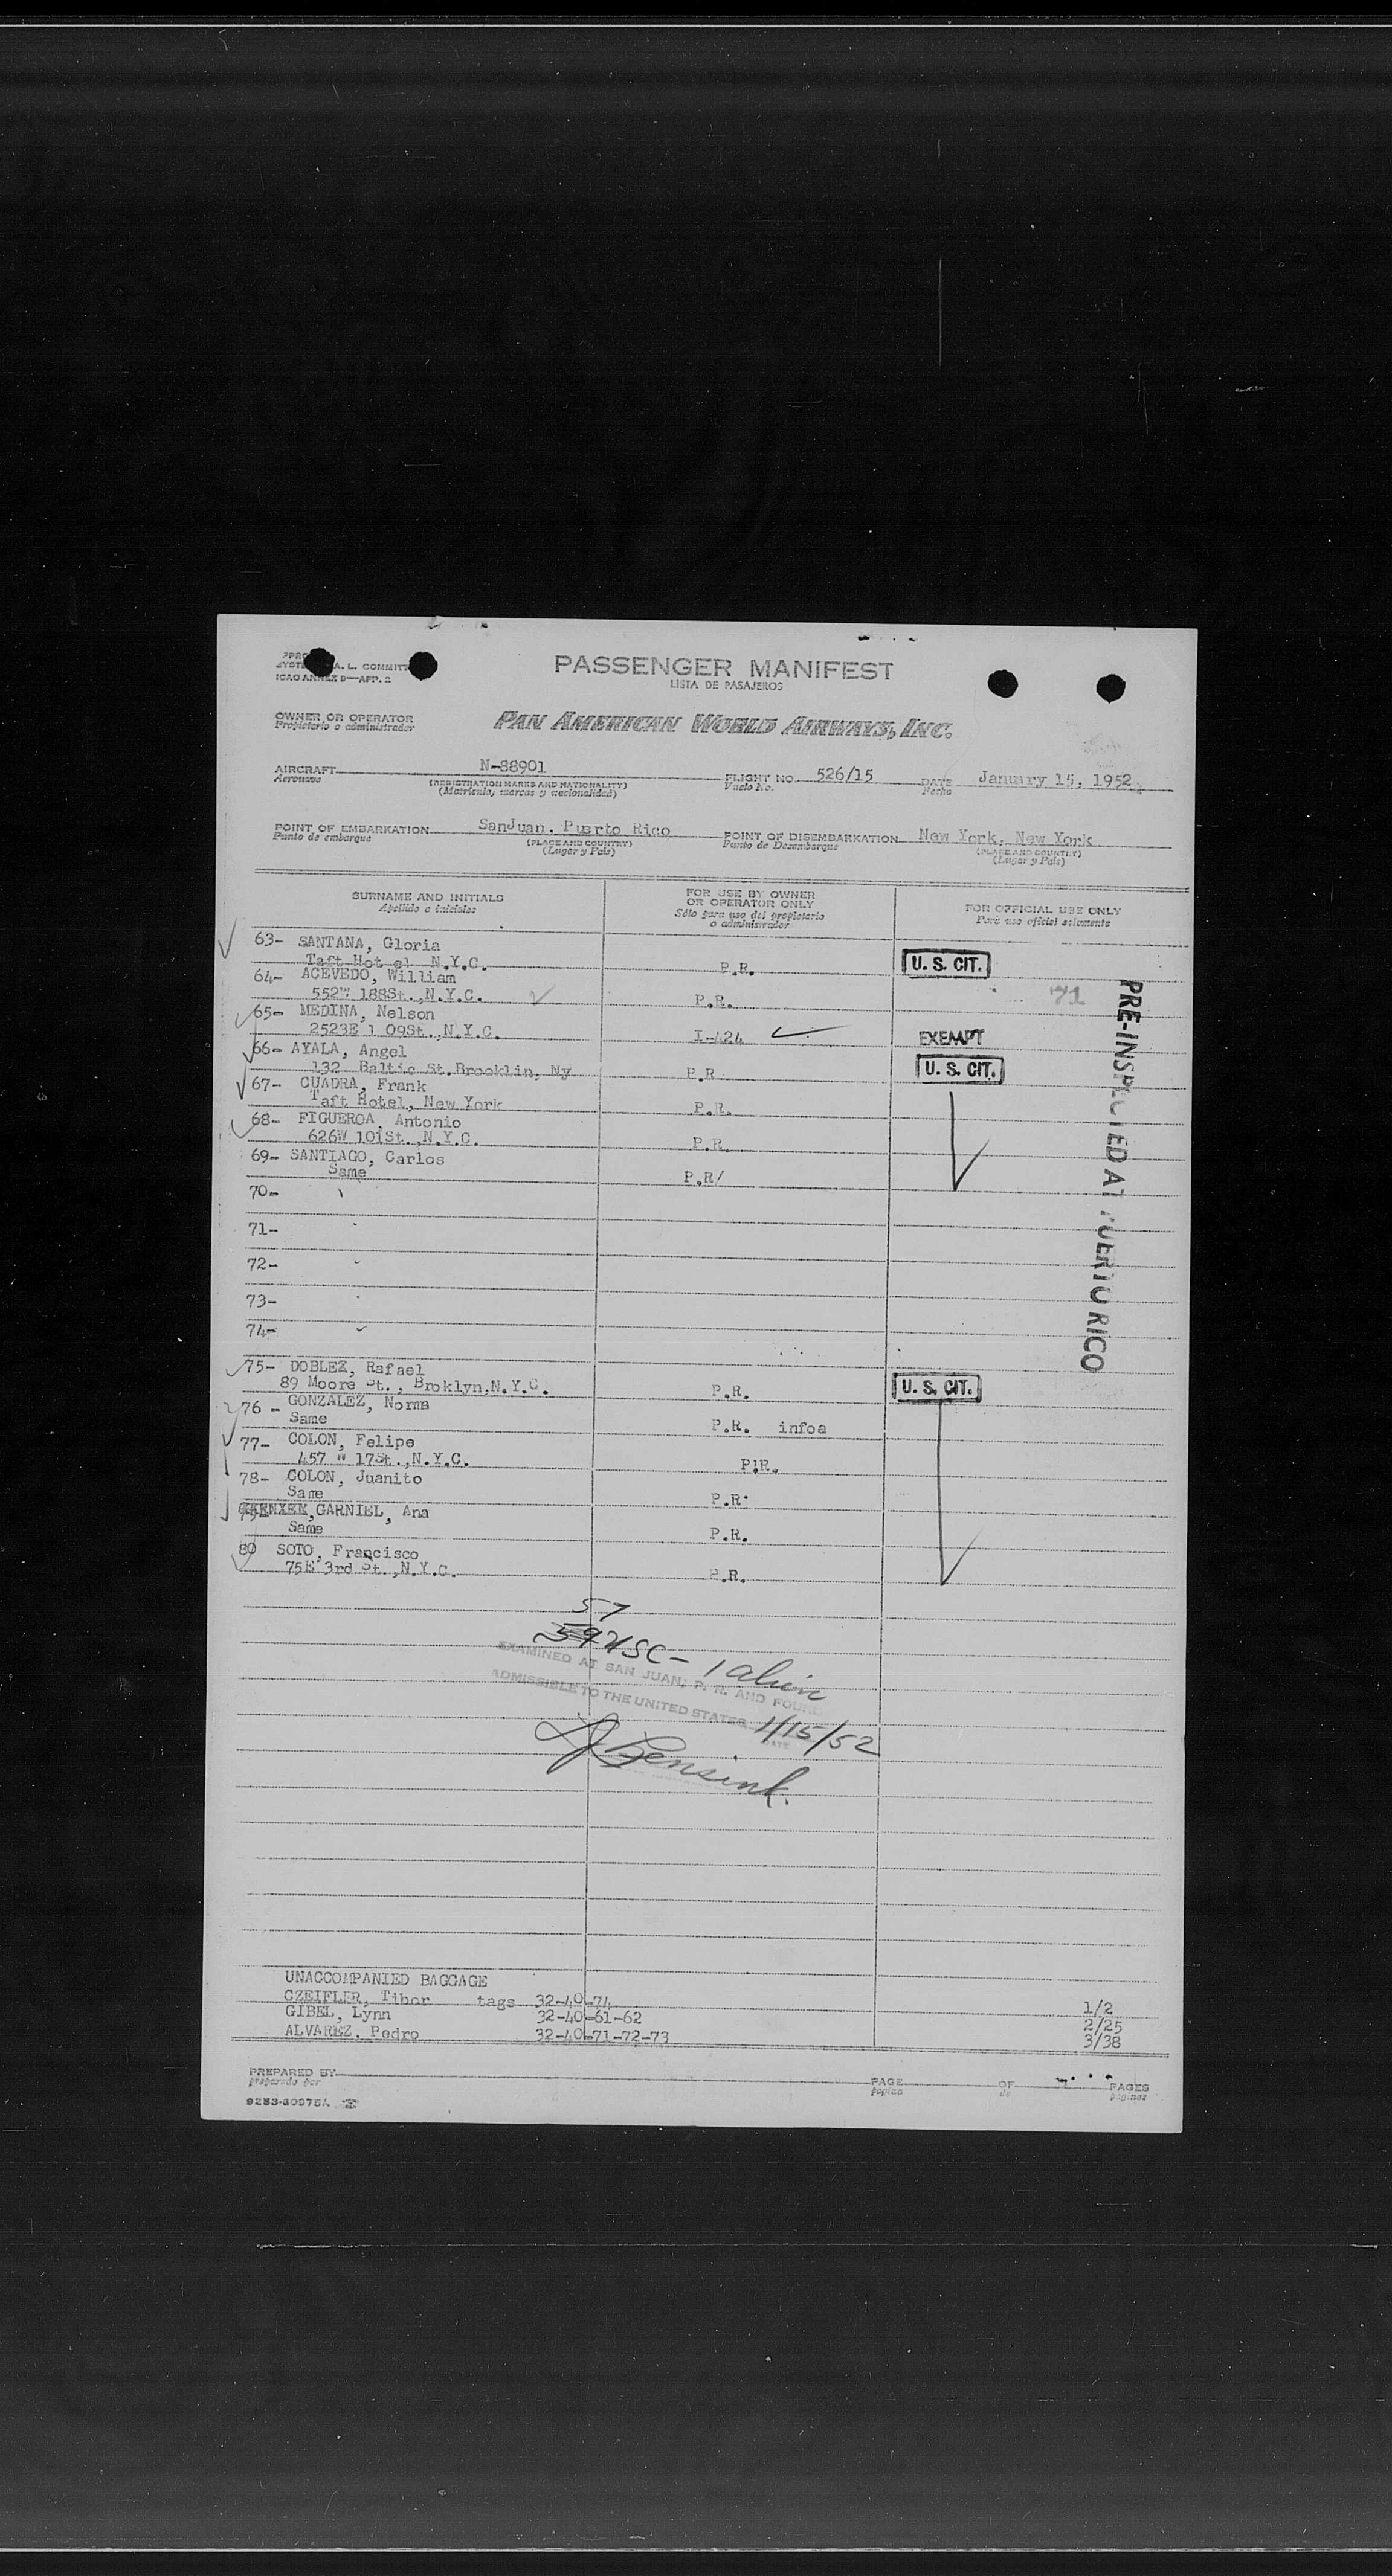 A. L. COMMITT
ICAO ANNEX 9—APP. 2
PASSENGER MANIFEST
LISTA DE PASAJEROS
OWNER OR OPERATOR
Propietario o administrador
PAN AMERICAN WORLD AIRWAYS, INC.
AIRCRAFT N-88901 FLIGHT NO. 526/15 DATE January 15, 1952
Aeronave (REGISTRATION MARKS AND NATIONALITY) Vuelo No. Fecha
(Matrícula, marcas y nacionalidad)
POINT OF EMBARKATION SanJuan, Puerto Rico POINT OF DISEMBARKATION New York, New York
Punto de embarque (PLACE AND COUNTRY) Punto de Desembarque (PLACE AND COUNTRY)
(Lugar y País) (Lugar y País)
SURNAME AND INITIALS FOR USE BY OWNER OR OPERATOR ONLY FOR OFFICIAL USE ONLY
Apellido e iniciales Sólo para uso del propietario o administrador Para uso oficial solamente
63- SANTANA, Gloria
Taft Hotel N.Y.C. P.R. U. S. CIT.
64- ACEVEDO, William
552W 188St.,N.Y.C. P.R. 71
65- MEDINA, Nelson
2523E 1 09St., N.Y.C. I-424 EXEMPT
66- AYALA, Angel
132 Baltic St.Brooklin, Ny P.R. U. S. CIT.
67- CUADRA, Frank
Taft Hotel, New York P.R.
68- FIGUEROA, Antonio
626W 101St.,N.Y.C. P.R.
69- SANTIAGO, Carlos
Same P.R/
70-
71-
72-
73-
74-
PRE-INSPECTED AT PUERTO RICO
75- DOBLEZ, Rafael
89 Moore St., Broklyn,N.Y.C. P.R. U. S. CIT.
76 - GONZALEZ, Norma
Same P.R. infoa
77- COLON, Felipe
457 W 17St.,N.Y.C. P!R.
78- COLON, Juanito
Same P.R:
GARNIEL, Ana
Same P.R.
80 SOTO, Francisco
75E 3rd St.,N.Y.C. P.R.
57
59 USC - 1 alien
EXAMINED AT SAN JUAN, P. R. AND FOUND
ADMISSIBLE TO THE UNITED STATES 1/15/52
DATE
UNACCOMPANIED BAGGAGE
CZEIFLER, Tibor tags 32-40-74 1/2
GIBEL, Lynn 32-40-61-62 2/25
ALVAREZ, Pedro 32-40-71-72-73 3/38
PREPARED BY PAGE OF PAGES
preparado por página de páginas